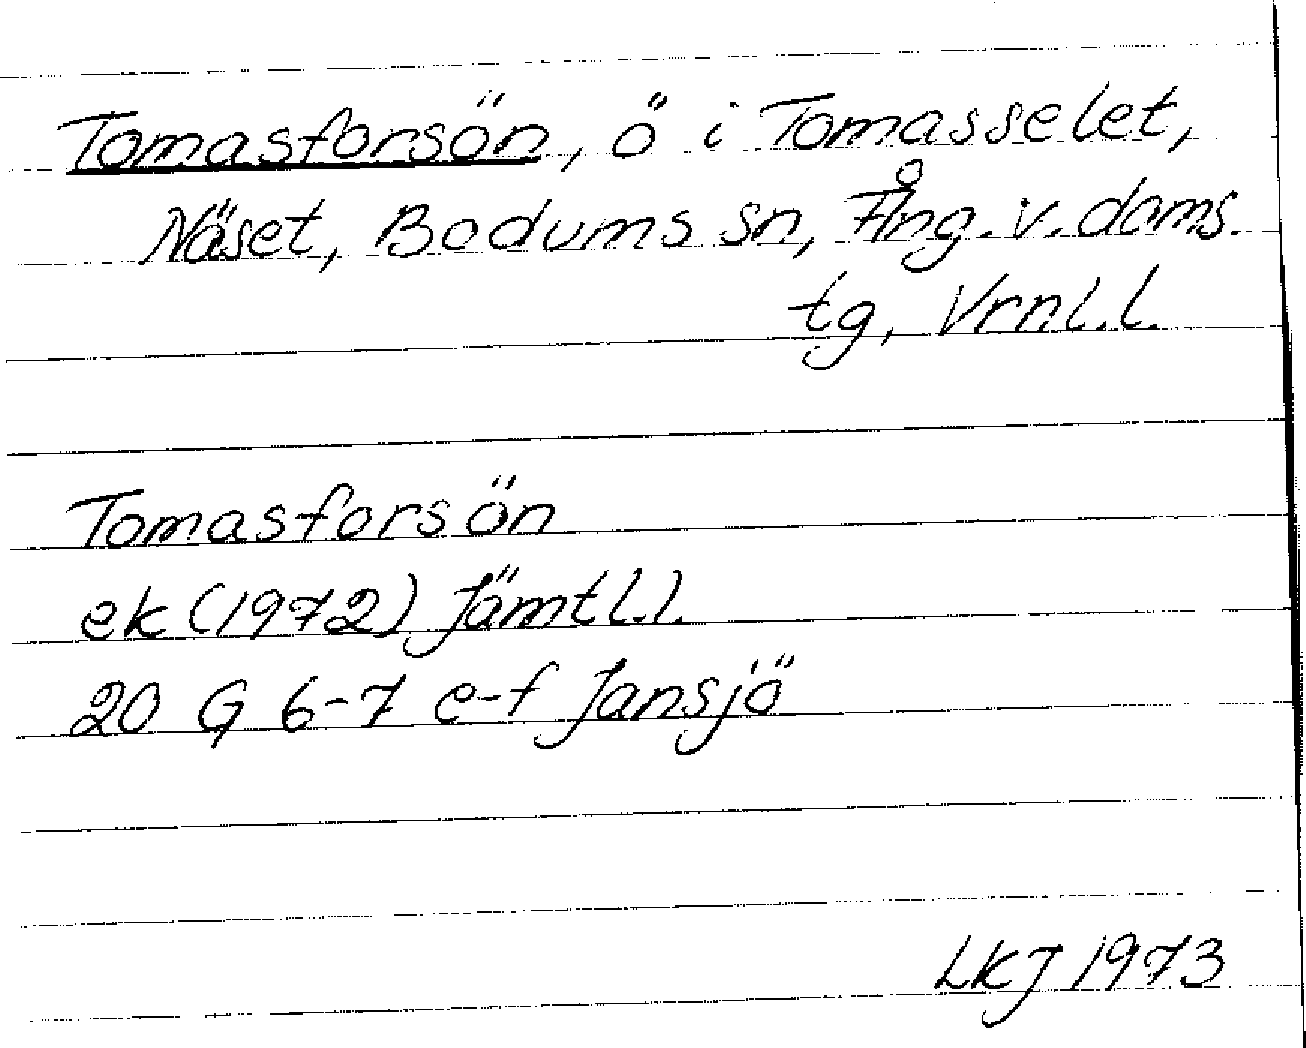 Tomasforsön, ö i Tomasselet,
Näset, Bodums sn, Ång. v. doms.
tg, Vrnl. l.
Tomasforsön
ek (1972) Jämtl. l.
20 G 6-7 e-f Jansjö
LKJ 1973